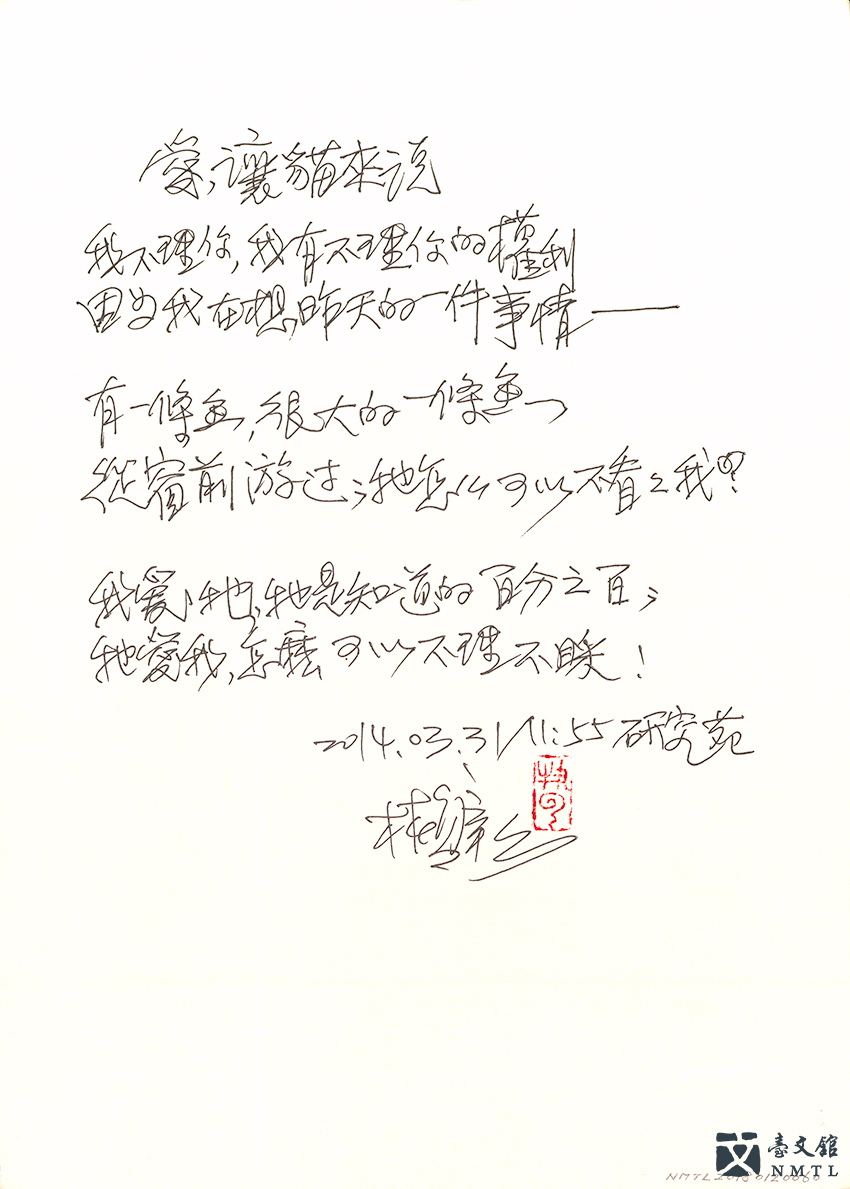 愛,让貓來说
我不理你,我有不理你的權利
因为我在想,昨天的一件事情——
有一條鱼,很大的一條鱼、
從窗前游过;牠怎么可以不看看我?
我愛牠,牠是知道的百分之百;
牠愛我,怎麼可以不理不睬!
2014.03.31/11:55研究苑
林煥彰
臺文館
NMTL